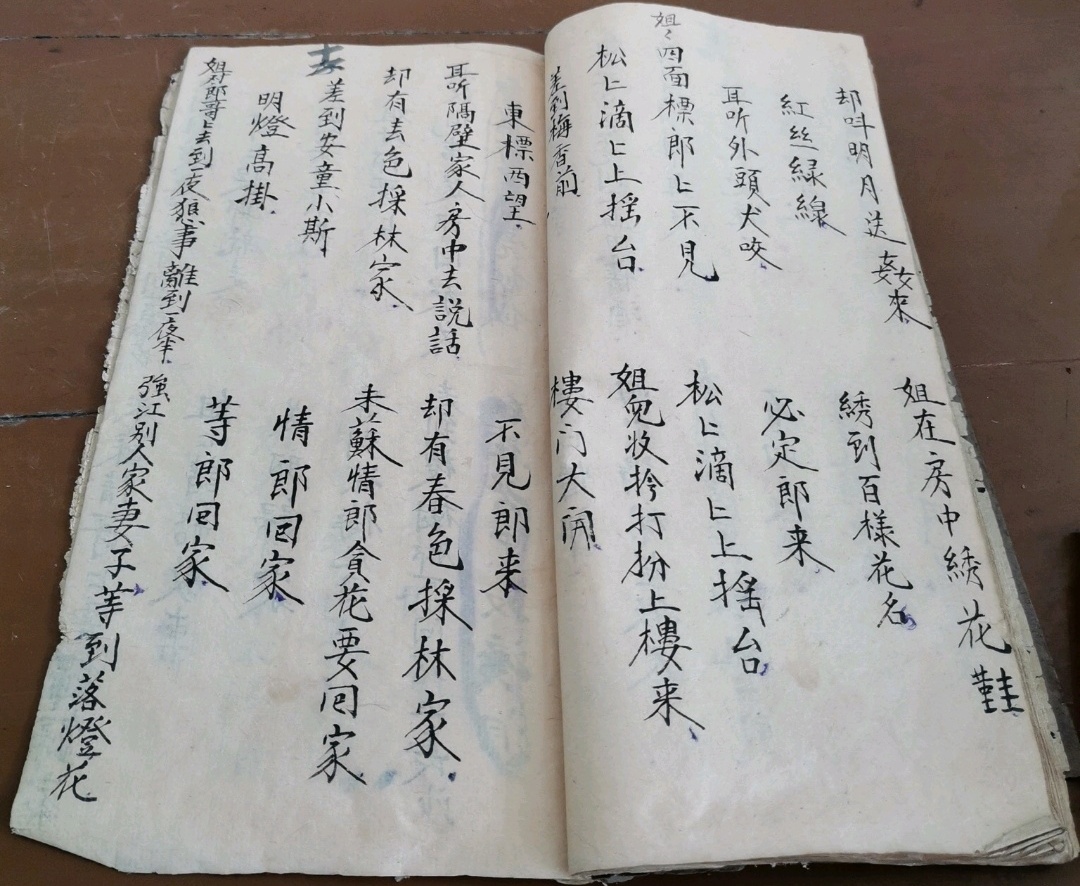 却呌明月送姦來 姐在房中綉花鞋
紅丝緑線 綉到百樣花名
耳听外頭犬咬 必定郎来
姐〻四面標郎〻不見 松〻滴〻上摇台
松〻滴〻上摇台 姐兒收拎打扮上樓来
差到梅香前 樓门大開
東標西望 不見郎来
耳听隔壁家人房中去説話 却有春色採林家
却有去色採林家 未蘇情郎貪花要囘家
去差到安童小斯 情郎囘家
明燈高掛 等郎囘家
郎哥〻去到一夜狠事離到一夜 強江别人家妻子等到落燈花